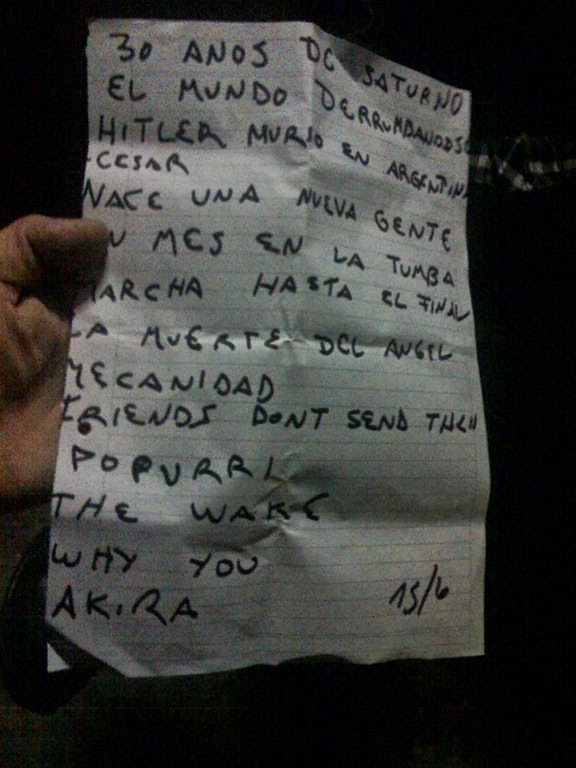 30 ANOS DE SATURNO
EL MUNDO DERRUMBANDOSE
HITLER MURIO EN ARGENTINA
-CESAR
NACE UNA NUEVA GENTE
UN MES EN LA TUMBA
MARCHA HASTA EL FINAL
LA MUERTE DEL ANGEL
MECANIDAD
FRIENDS DONT SEND THEM
POPURRI
THE WAKE
WHY YOU
AKIRA 15/6